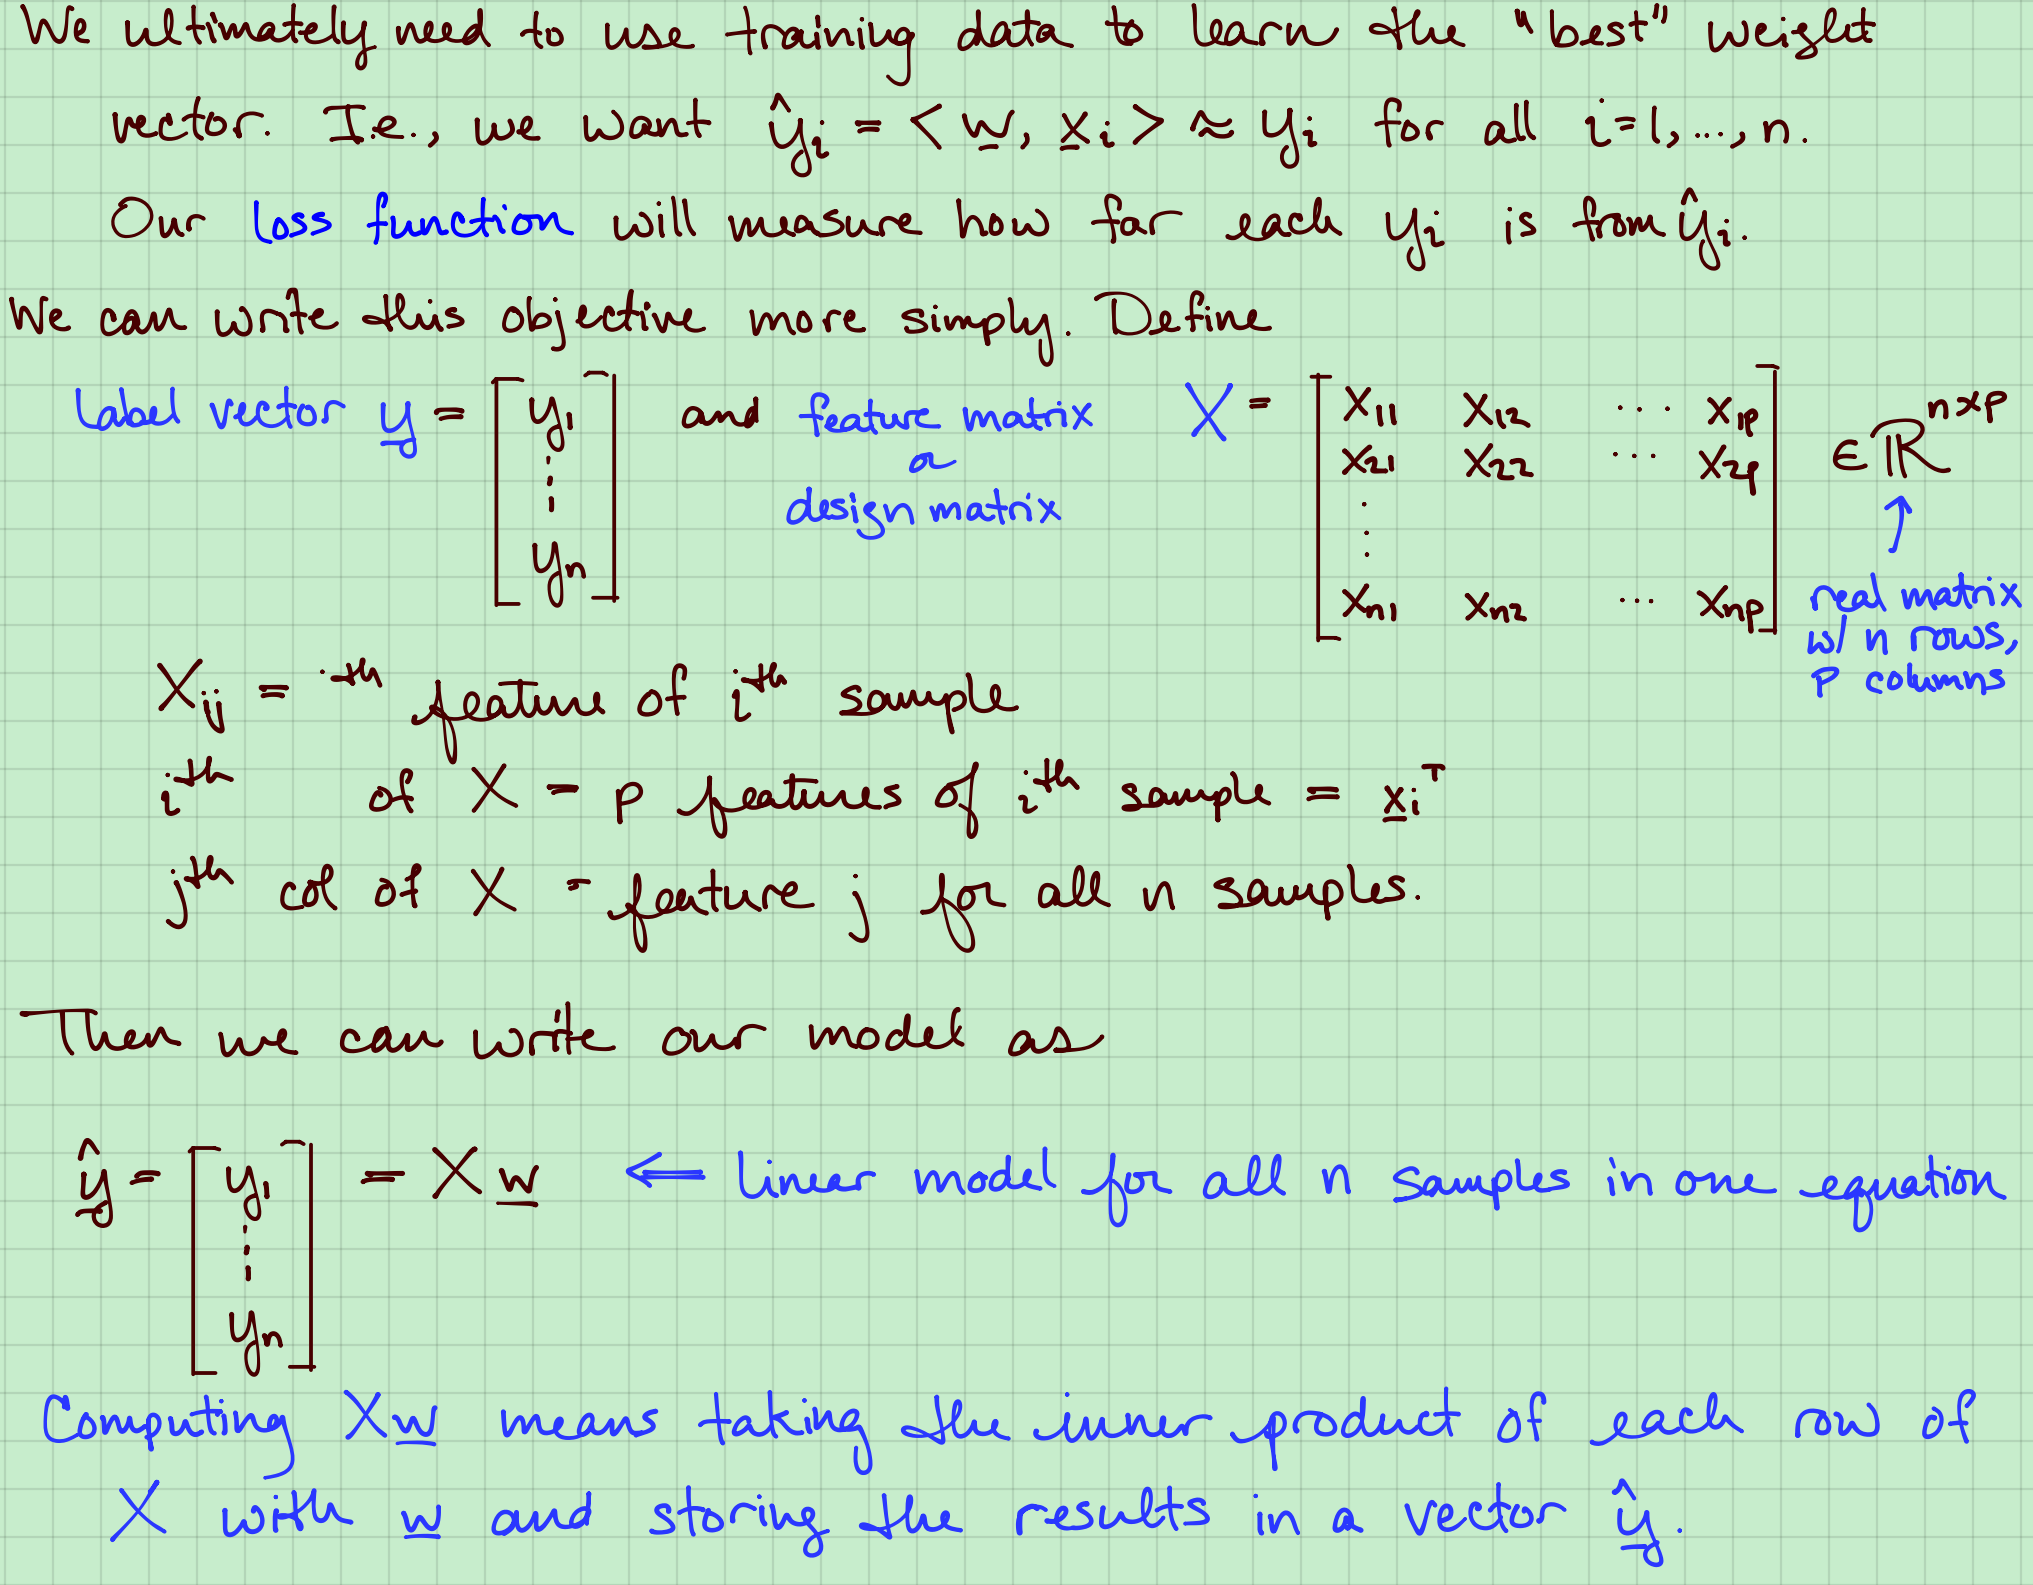 We ultimately need to use training data to learn the "best" weight
vector. I.e., we want ŷᵢ = <w̲, x̲ᵢ> ≈ yᵢ for all i=1,...,n.
Our loss function will measure how far each yᵢ is from ŷᵢ.
We can write this objective more simply. Define
Label vector y̲ = [y₁ ⋮ yₙ] and feature matrix or design matrix X = [x₁₁ x₁₂ ⋯ x₁ₚ
x₂₁ x₂₂ ⋯ x₂ₚ
⋮
xₙ₁ xₙ₂ ⋯ xₙₚ] ∈ ℝⁿˣᵖ
↑
real matrix
w/ n rows,
p columns
Xᵢⱼ = th feature of iᵗʰ sample
iᵗʰ of X = p features of iᵗʰ sample = x̲ᵢᵀ
jᵗʰ col of X = feature j for all n samples.
Then we can write our model as
ŷ̲ = [y₁ ⋮ yₙ] = X w̲ ⟸ linear model for all n samples in one equation
Computing Xw̲ means taking the inner product of each row of
X with w̲ and storing the results in a vector ŷ̲.